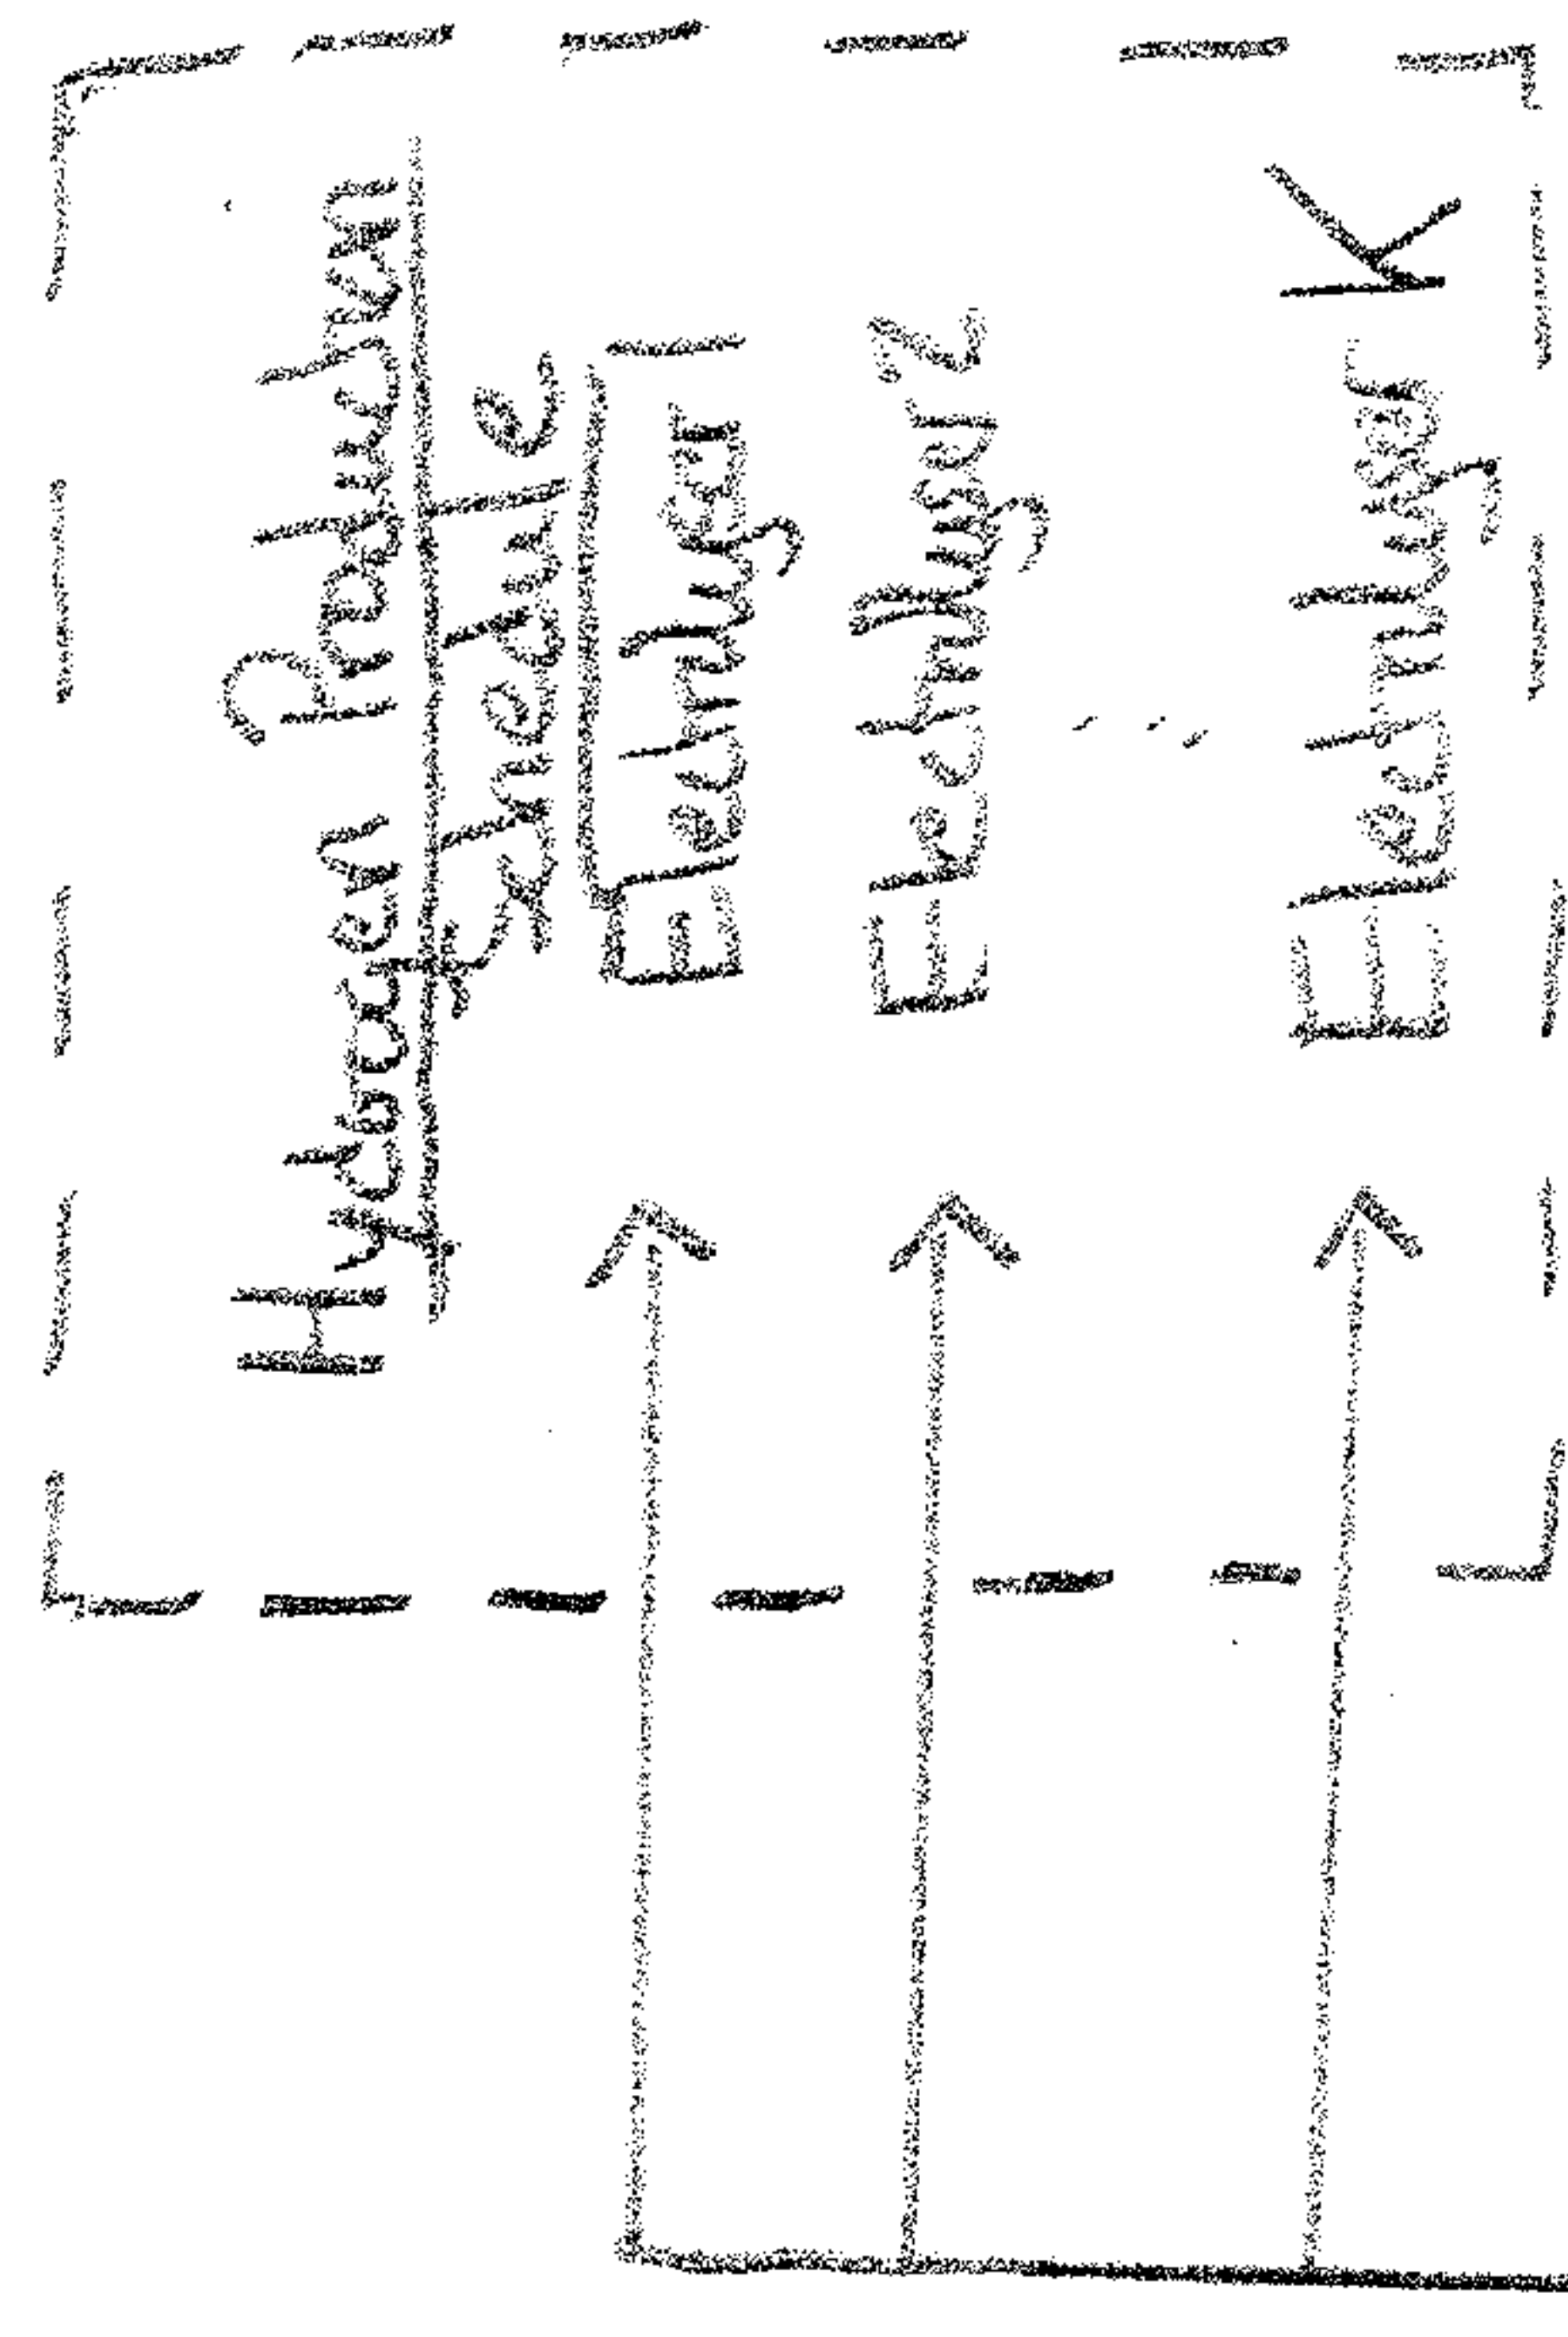 Hydrogen Production
Schedule
Electrolyser 1
Electrolyser 2
Electrolyser K